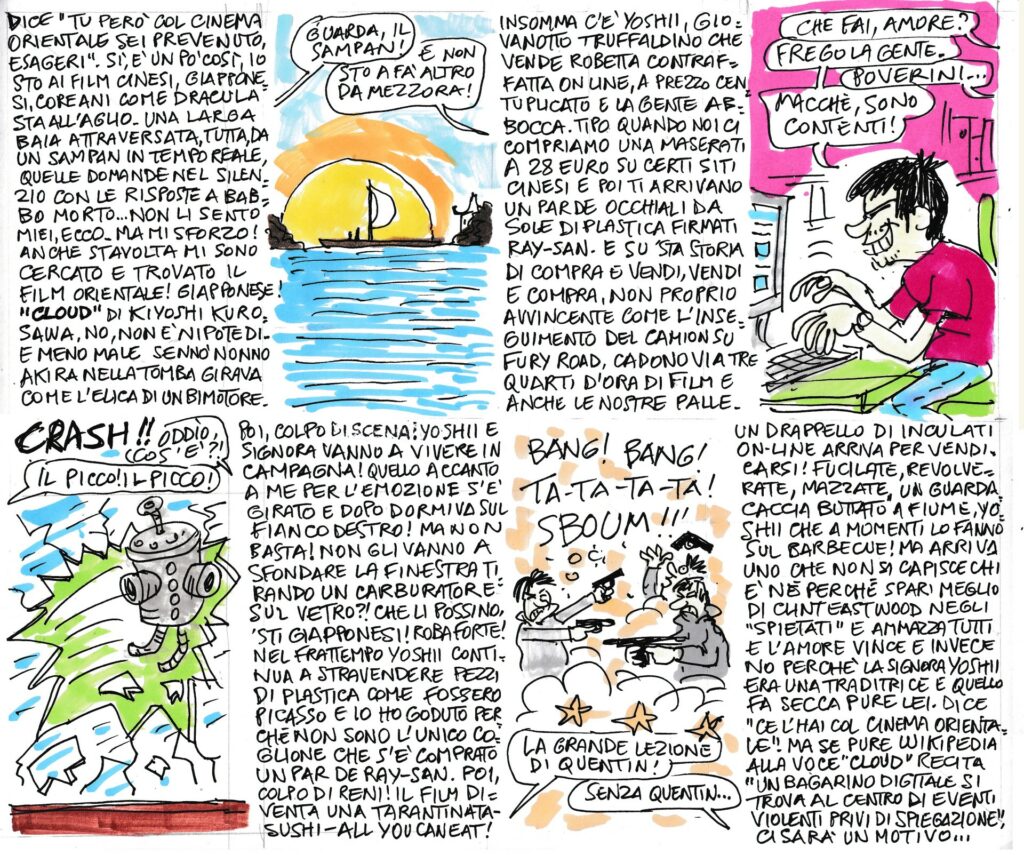 DICE "TU PERÒ COL CINEMA
ORIENTALE SEI PREVENUTO,
ESAGERI". SÌ, È UN PO' COSÌ, IO
STO AI FILM CINESI, GIAPPONE-
SI, COREANI COME DRACULA
STA ALL'AGLIO. UNA LARGA
BAIA ATTRAVERSATA, TUTTA, DA
UN SAMPAN IN TEMPO REALE,
QUELLE DOMANDE NEL SILEN-
ZIO CON LE RISPOSTE A BAB-
BO MORTO... NON LI SENTO
MIEI, ECCO. MA MI SFORZO!
ANCHE STAVOLTA MI SONO
CERCATO E TROVATO IL
FILM ORIENTALE! GIAPPONESE!
"CLOUD" DI KIYOSHI KURO-
SAWA, NO, NON È NIPOTE DI-
E MENO MALE SENNÒ NONNO
AKIRA NELLA TOMBA GIRAVA
COME L'ELICA DI UN BIMOTORE.
GUARDA, IL
SAMPAN!
E NON
STO A FÀ ALTRO
DA MEZZORA!
INSOMMA C'È YOSHII, GIO-
VANOTTO TRUFFALDINO CHE
VENDE ROBETTA CONTRAF-
FATTA ON LINE, A PREZZO CEN-
TUPLICATO E LA GENTE AB-
BOCCA. TIPO QUANDO NOI CI
COMPRIAMO UNA MASERATI
A 28 EURO SU CERTI SITI
CINESI E POI TI ARRIVANO
UN PAR DE OCCHIALI DA
SOLE DI PLASTICA FIRMATI
RAY-SAN. E SU 'STA STORIA
DI COMPRA E VENDI, VENDI
E COMPRA, NON PROPRIO
AVVINCENTE COME L'INSE-
GUIMENTO DEL CAMION SU
FURY ROAD, CADONO VIA TRE
QUARTI D'ORA DI FILM E
ANCHE LE NOSTRE PALLE.
CHE FAI, AMORE?
FREGO LA GENTE.
POVERINI...
MACCHÈ, SONO
CONTENTI!
CRASH!!
ODDIO,
COS'È?!
IL PICCO! IL PICCO!
POI, COLPO DI SCENA: YOSHII E
SIGNORA VANNO A VIVERE IN
CAMPAGNA! QUELLO ACCANTO
A ME PER L'EMOZIONE S'È
GIRATO E DOPO DORMIVA SUL
FIANCO DESTRO! MA NON
BASTA! NON GLI VANNO A
SFONDARE LA FINESTRA TI-
RANDO UN CARBURATORE
SUL VETRO?! CHE LI POSSINO,
'STI GIAPPONESI! ROBA FORTE!
NEL FRATTEMPO YOSHII CONTI-
NUA A STRAVENDERE PEZZI
DI PLASTICA COME FOSSERO
PICASSO E IO HO GODUTO PER-
CHÉ NON SONO L'UNICO CO-
GLIONE CHE S'È COMPRATO
UN PAR DE RAY-SAN. POI,
COLPO DI RENI! IL FILM DI-
VENTA UNA TARANTINATA-
SUSHI-ALL YOU CAN EAT!
BANG! BANG!
TA-TA-TA-TA!
SBOUM!!!
LA GRANDE LEZIONE
DI QUENTIN!
SENZA QUENTIN...
UN DRAPPELLO DI INCULATI
ON-LINE ARRIVA PER VENDI-
CARSI! FUCILATE, REVOLVE-
RATE, MAZZATE, UN GUARDA-
CACCIA BUTTATO A FIUME, YO-
SHII CHE A MOMENTI LO FANNO
SUL BARBECUE! MA ARRIVA
UNO CHE NON SI CAPISCE CHI
È NÈ PERCHÉ SPARI MEGLIO
DI CLINT EASTWOOD NEGLI
"SPIETATI" E AMMAZZA TUTTI
E L'AMORE VINCE E INVECE
NO PERCHÈ LA SIGNORA YOSHII
ERA UNA TRADITRICE E QUELLO
FA SECCA PURE LEI. DICE
"CE L'HAI COL CINEMA ORIENTA-
LE"! MA SE PURE WIKIPEDIA
ALLA VOCE "CLOUD" RECITA
"UN BAGARINO DIGITALE SI
TROVA AL CENTRO DI EVENTI
VIOLENTI PRIVI DI SPIEGAZIONE",
CI SARÀ UN MOTIVO...